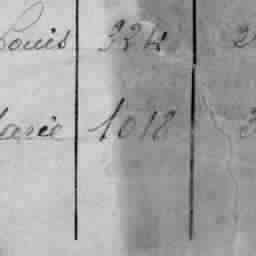 Louis 324 2
Marie 1018 3